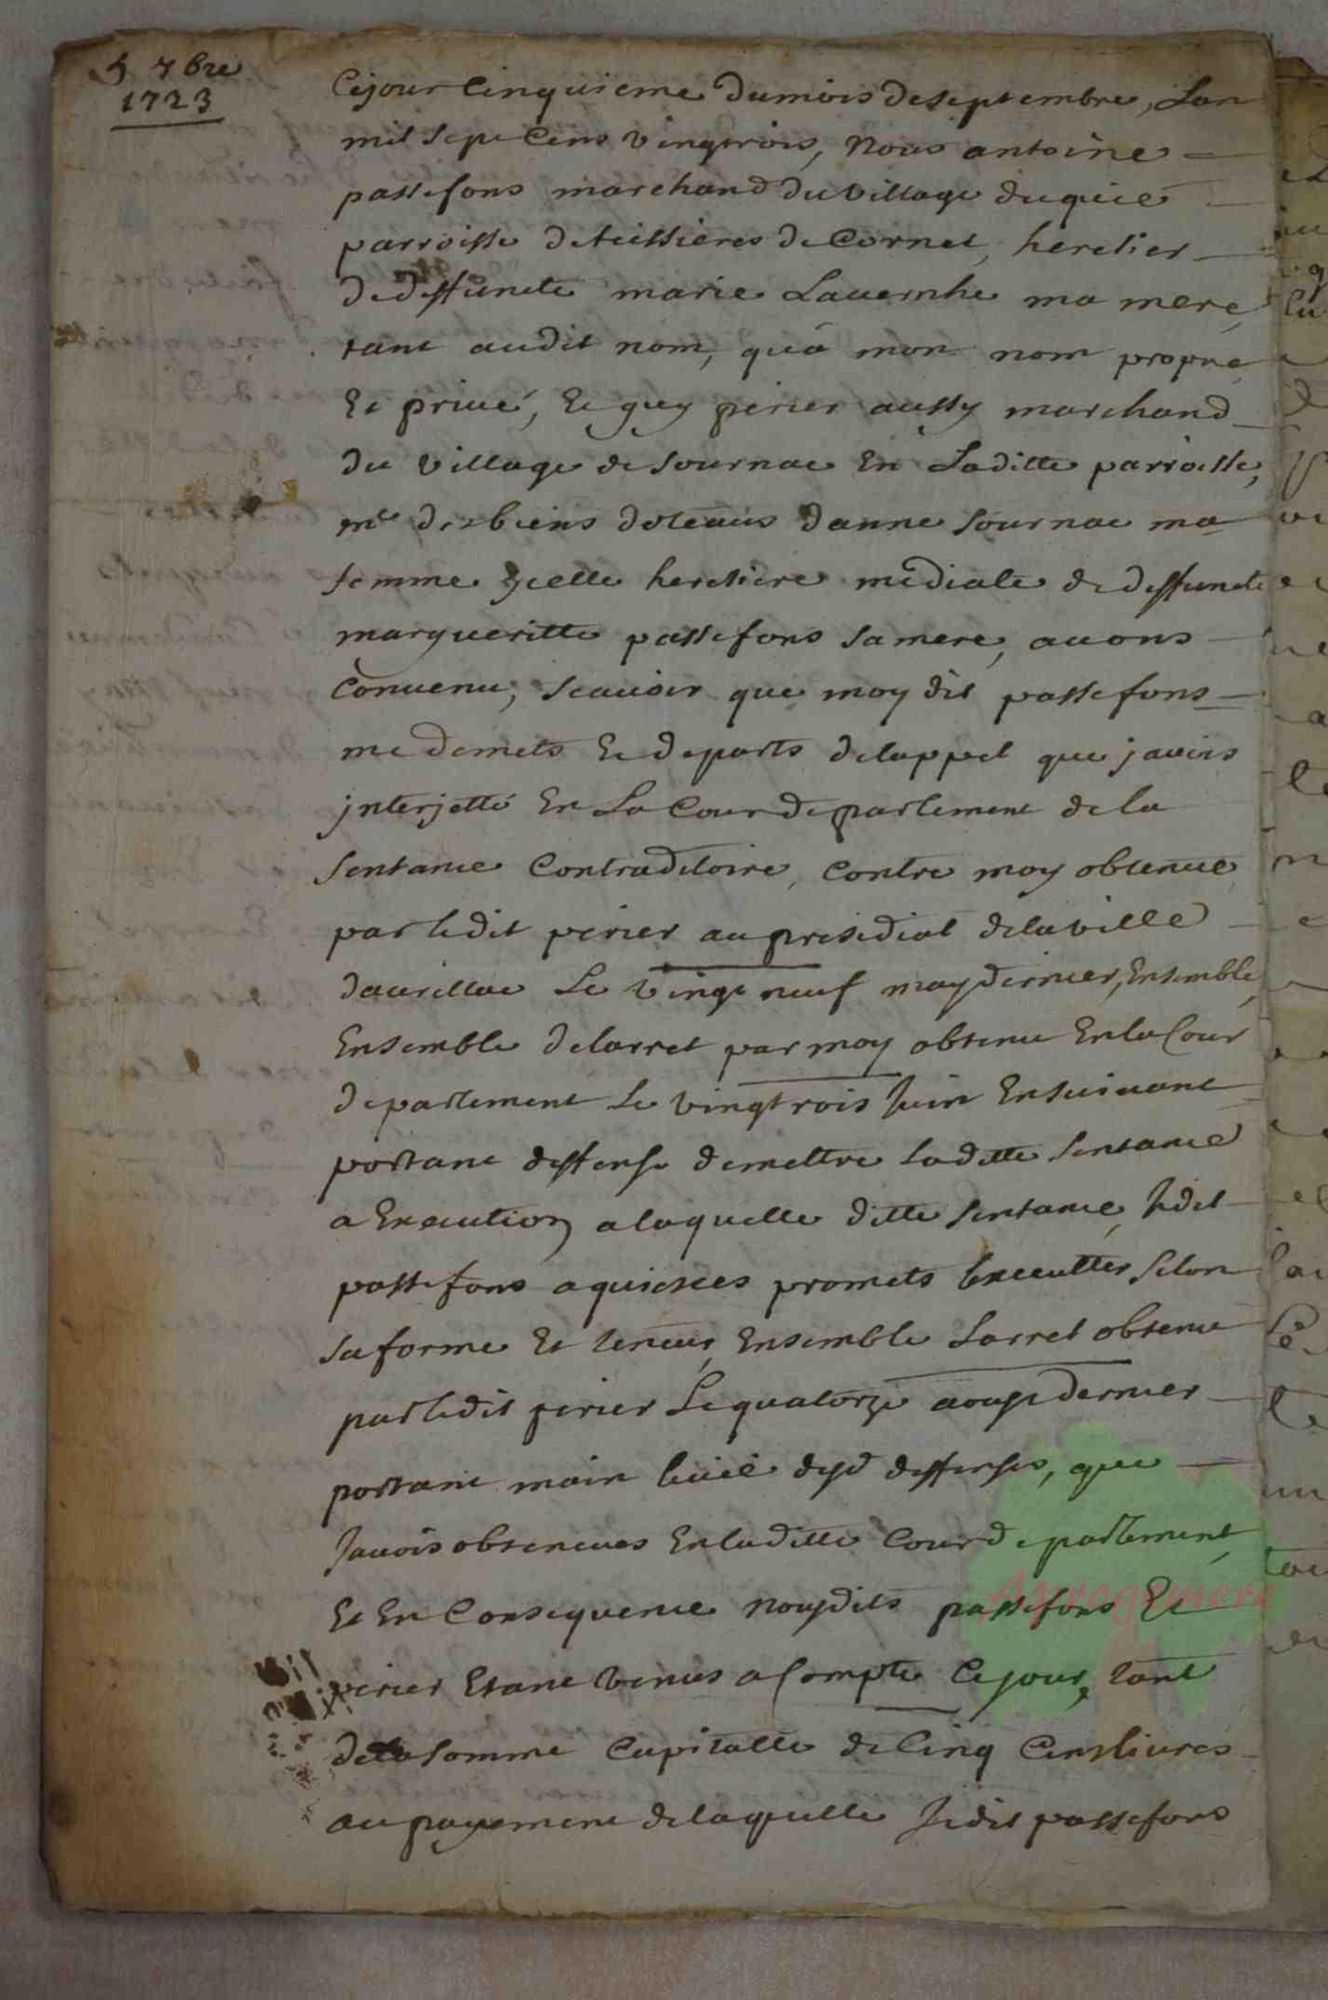 5 7bre
1723
Cejour Cinquieme dumois deseptembre, Lan
mil sept Cens vingtrois, Nous antoine
passefons marchand du village du quié
parroisse deteissieres de Cornet, heretier
dedeffuncte marie Lauernhe ma mere,
tant audit nom, qu'á mon nom propre
Et priué, Et guy perier aussy marchand
du village de sournac En Laditte parroisse,
me des biens doteaus danne sournac ma
femme ycelle heretiere mediate de deffuncte
margueritte passefons sa mere, auons
Conuenu, scauoir que moy dit passefons
me demets Et departs delappel que jauois
jnterjetté En La Cour de parlement de la
sentance Contraditoire, Contre moy obtenue
par ledit perier au presidial delaville
daurillac Le vingt neuf may dernier, Ensemble
Ensemble delarret par moy obtenu En la Cour
deparlement Le vingtrois Juin Ensuiuant
portant deffense demettre laditte sentance
a Execution a laquelle ditte sentance, Jedit
passefons aquiesces promets lexecutter selon
sa forme Et teneur, Ensemble Larret obtenu
par ledit perier Lequatorze aoust dernier
portant main leuée desd deffenses, que
Jauois obtenues En laditte Cour de parlement,
Et En Consequence nousdits passefons Et
perier Etant venus a Compte Cejour, tant
dela somme Capitalle de Cinq Cens liures
au payement delaquelle Jedit passefons